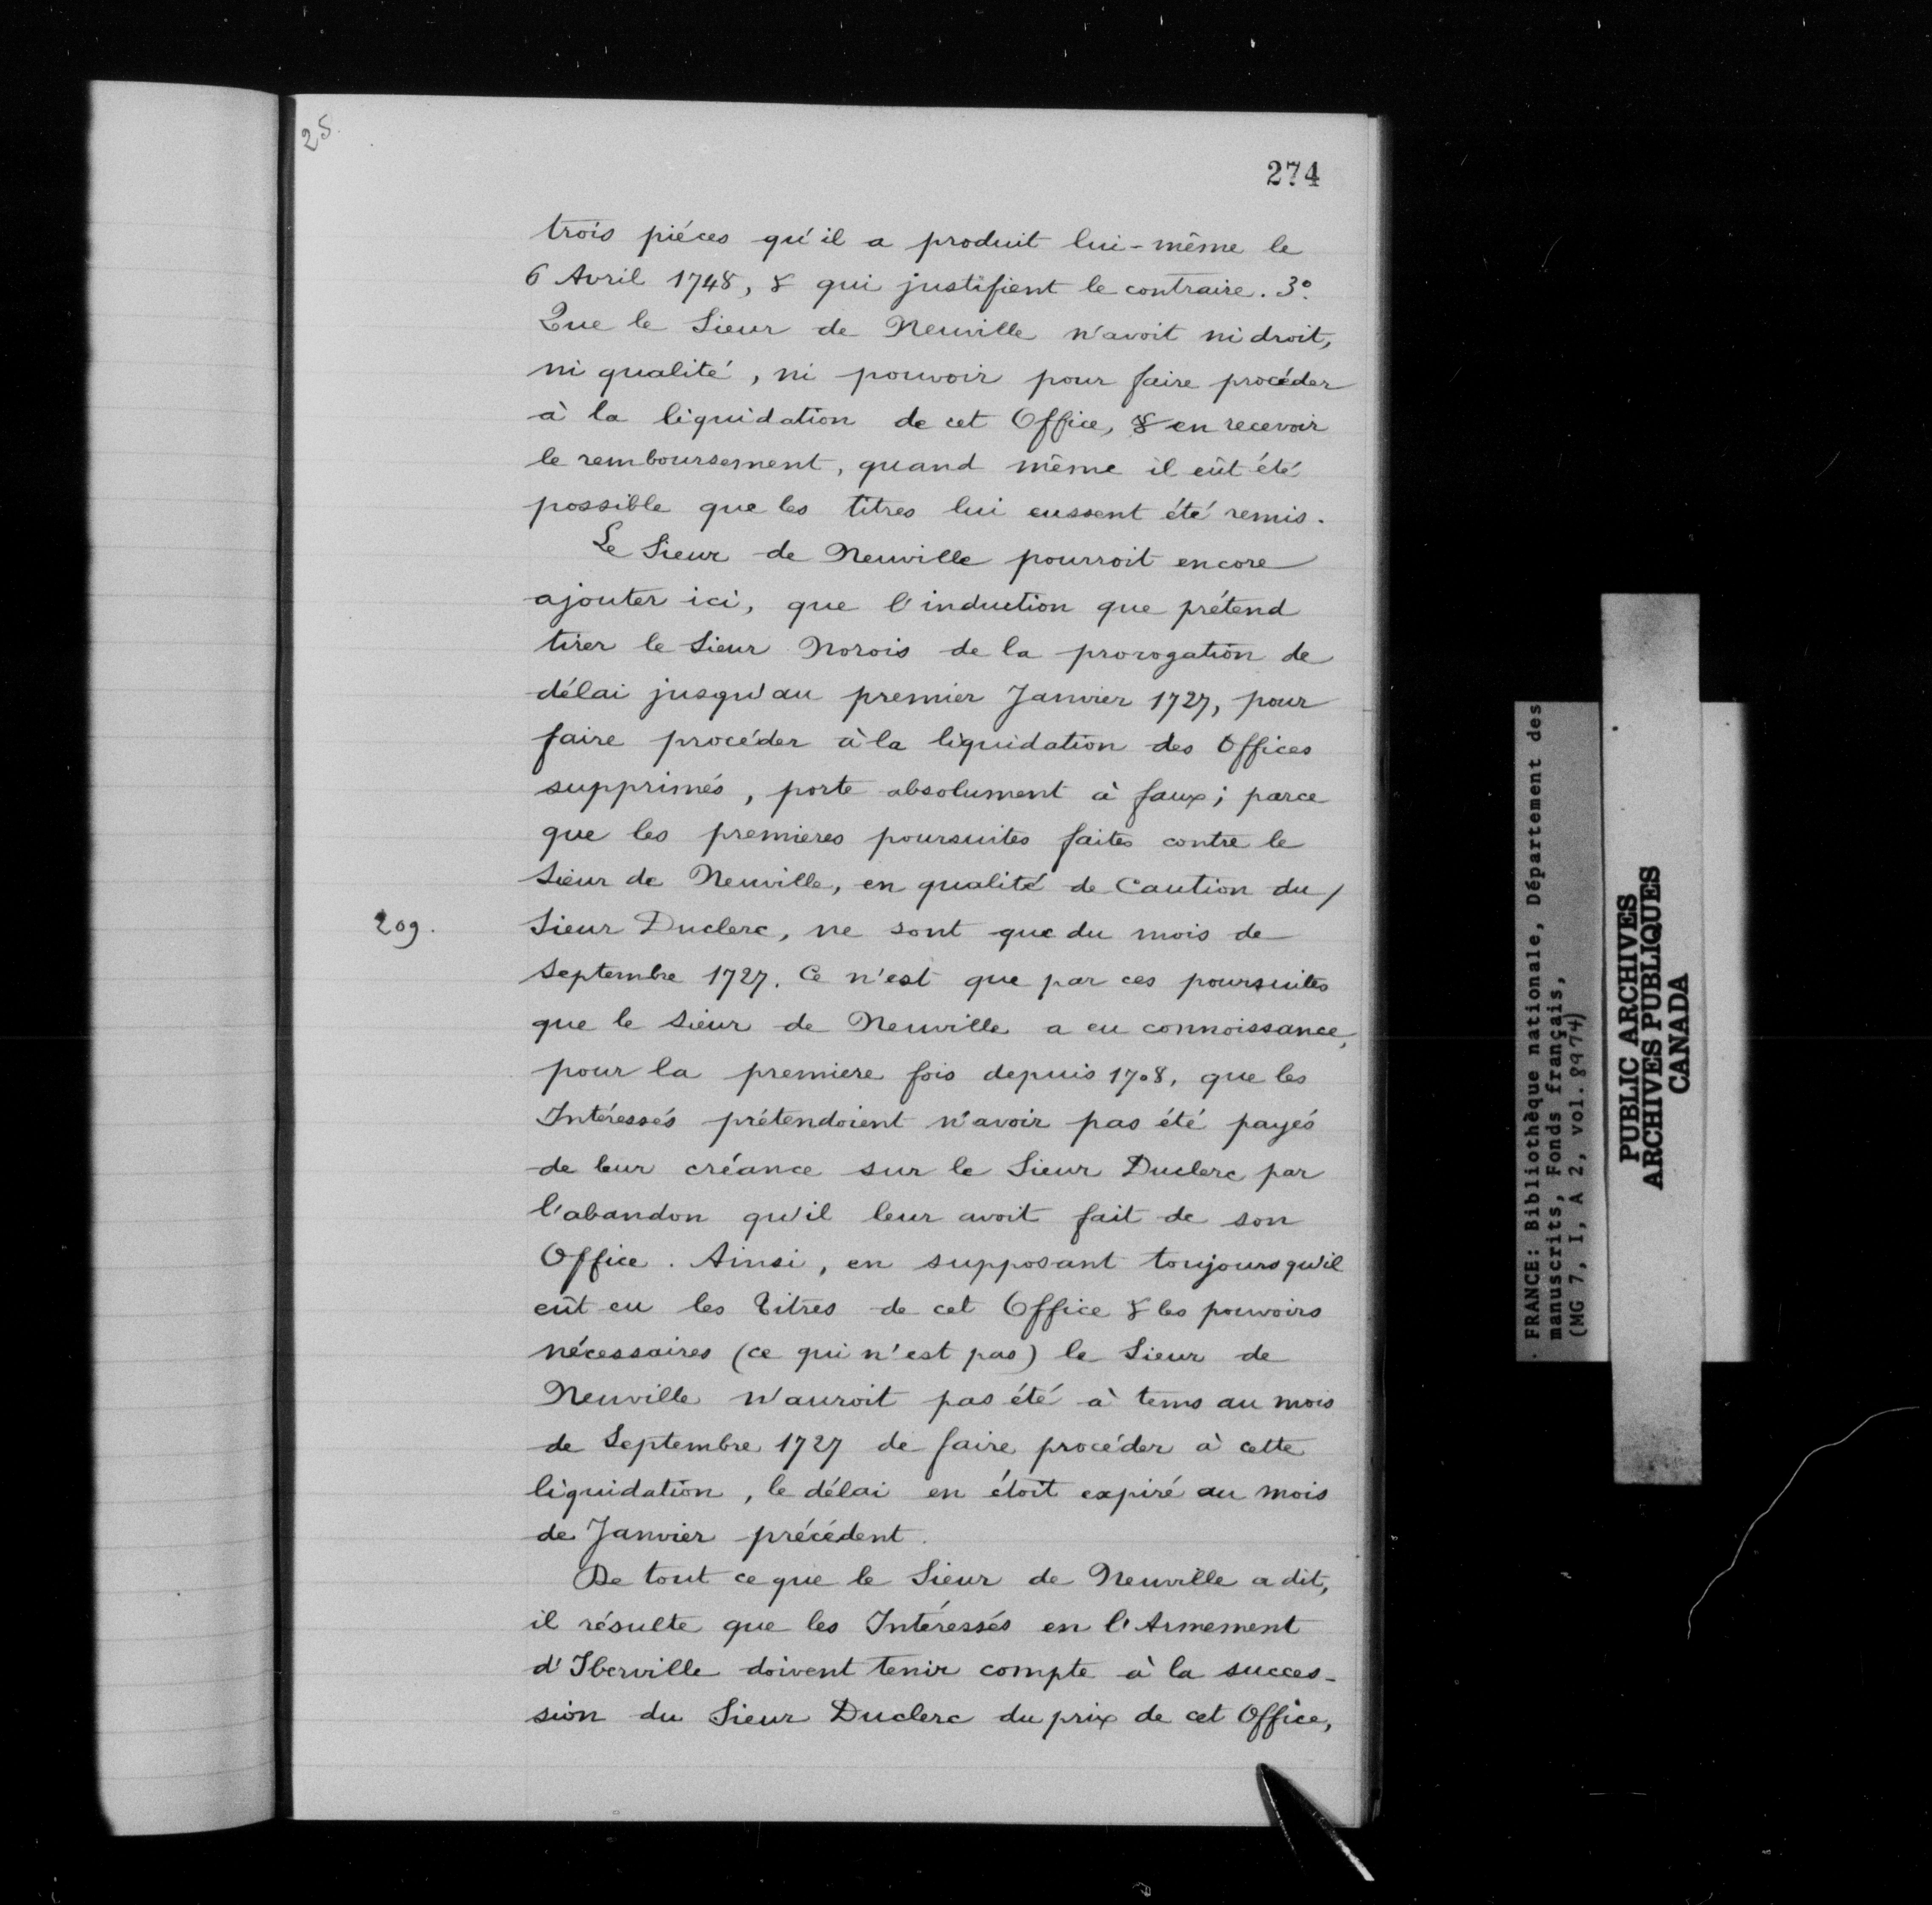 25.
274
trois piéces qu'il a produit lui-même le
6 Avril 1748, & qui justifient le contraire. 3º.
Que le Sieur de Neuville n'avoit ni droit,
ni qualité, ni pouvoir pour faire procéder
à la liquidation de cet Office, & en recevoir
le remboursement, quand même il eût été
possible que les titres lui eussent été remis.
Le Sieur de Neuville pourroit encore
ajouter ici, que l'induction que prétend
tirer le Sieur Norois de la prorogation de
délai jusqu'au premier Janvier 1727, pour
faire procéder à la liquidation des Offices
supprimés, porte absolument à faux; parce
que les premieres poursuites faites contre le
Sieur de Neuville, en qualité de Caution du /
209. Sieur Duclerc, ne sont que du mois de
Septembre 1727. Ce n'est que par ces poursuites
que le Sieur de Neuville a eu connoissance,
pour la premiere fois depuis 1708, que les
Intéressés prétendoient n'avoir pas été payés
de leur créance sur le Sieur Duclerc par
l'abandon qu'il leur avoit fait de son
Office. Ainsi, en supposant toujours qu'il
eût eu les Titres de cet Office & les pouvoirs
nécessaires (ce qui n'est pas) le Sieur de
Neuville n'auroit pas été à tems au mois
de Septembre 1727 de faire procéder à cette
liquidation, le délai en étoit expiré au mois
de Janvier précédent.
De tout ce que le Sieur de Neuville a dit,
il résulte que les Intéressés en l'Armement
d'Iberville doivent tenir compte à la succes-
sion du Sieur Duclerc du prix de cet Office,
FRANCE: Bibliothèque nationale, Département des
manuscrits, Fonds français,
(MG 7, I, A 2, vol. 8974)
PUBLIC ARCHIVES
ARCHIVES PUBLIQUES
CANADA